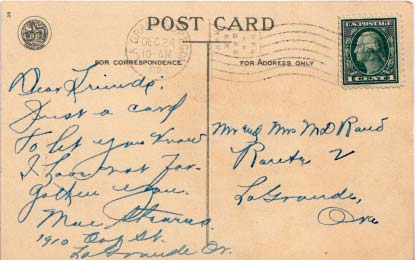 POST CARD
LA GRANDE, OREGON
DEC 24
10 AM
FOR CORRESPONDENCE
FOR ADDRESS ONLY
U.S. POSTAGE
1 CENT 1
Dear Friends:
Just a card
to let you know
I have not for-
gotten you.
Mae Stearns
1910 Oak St.
La Grande Or.
Mr and Mrs McD Rand
Route 2
La Grande,
Ore